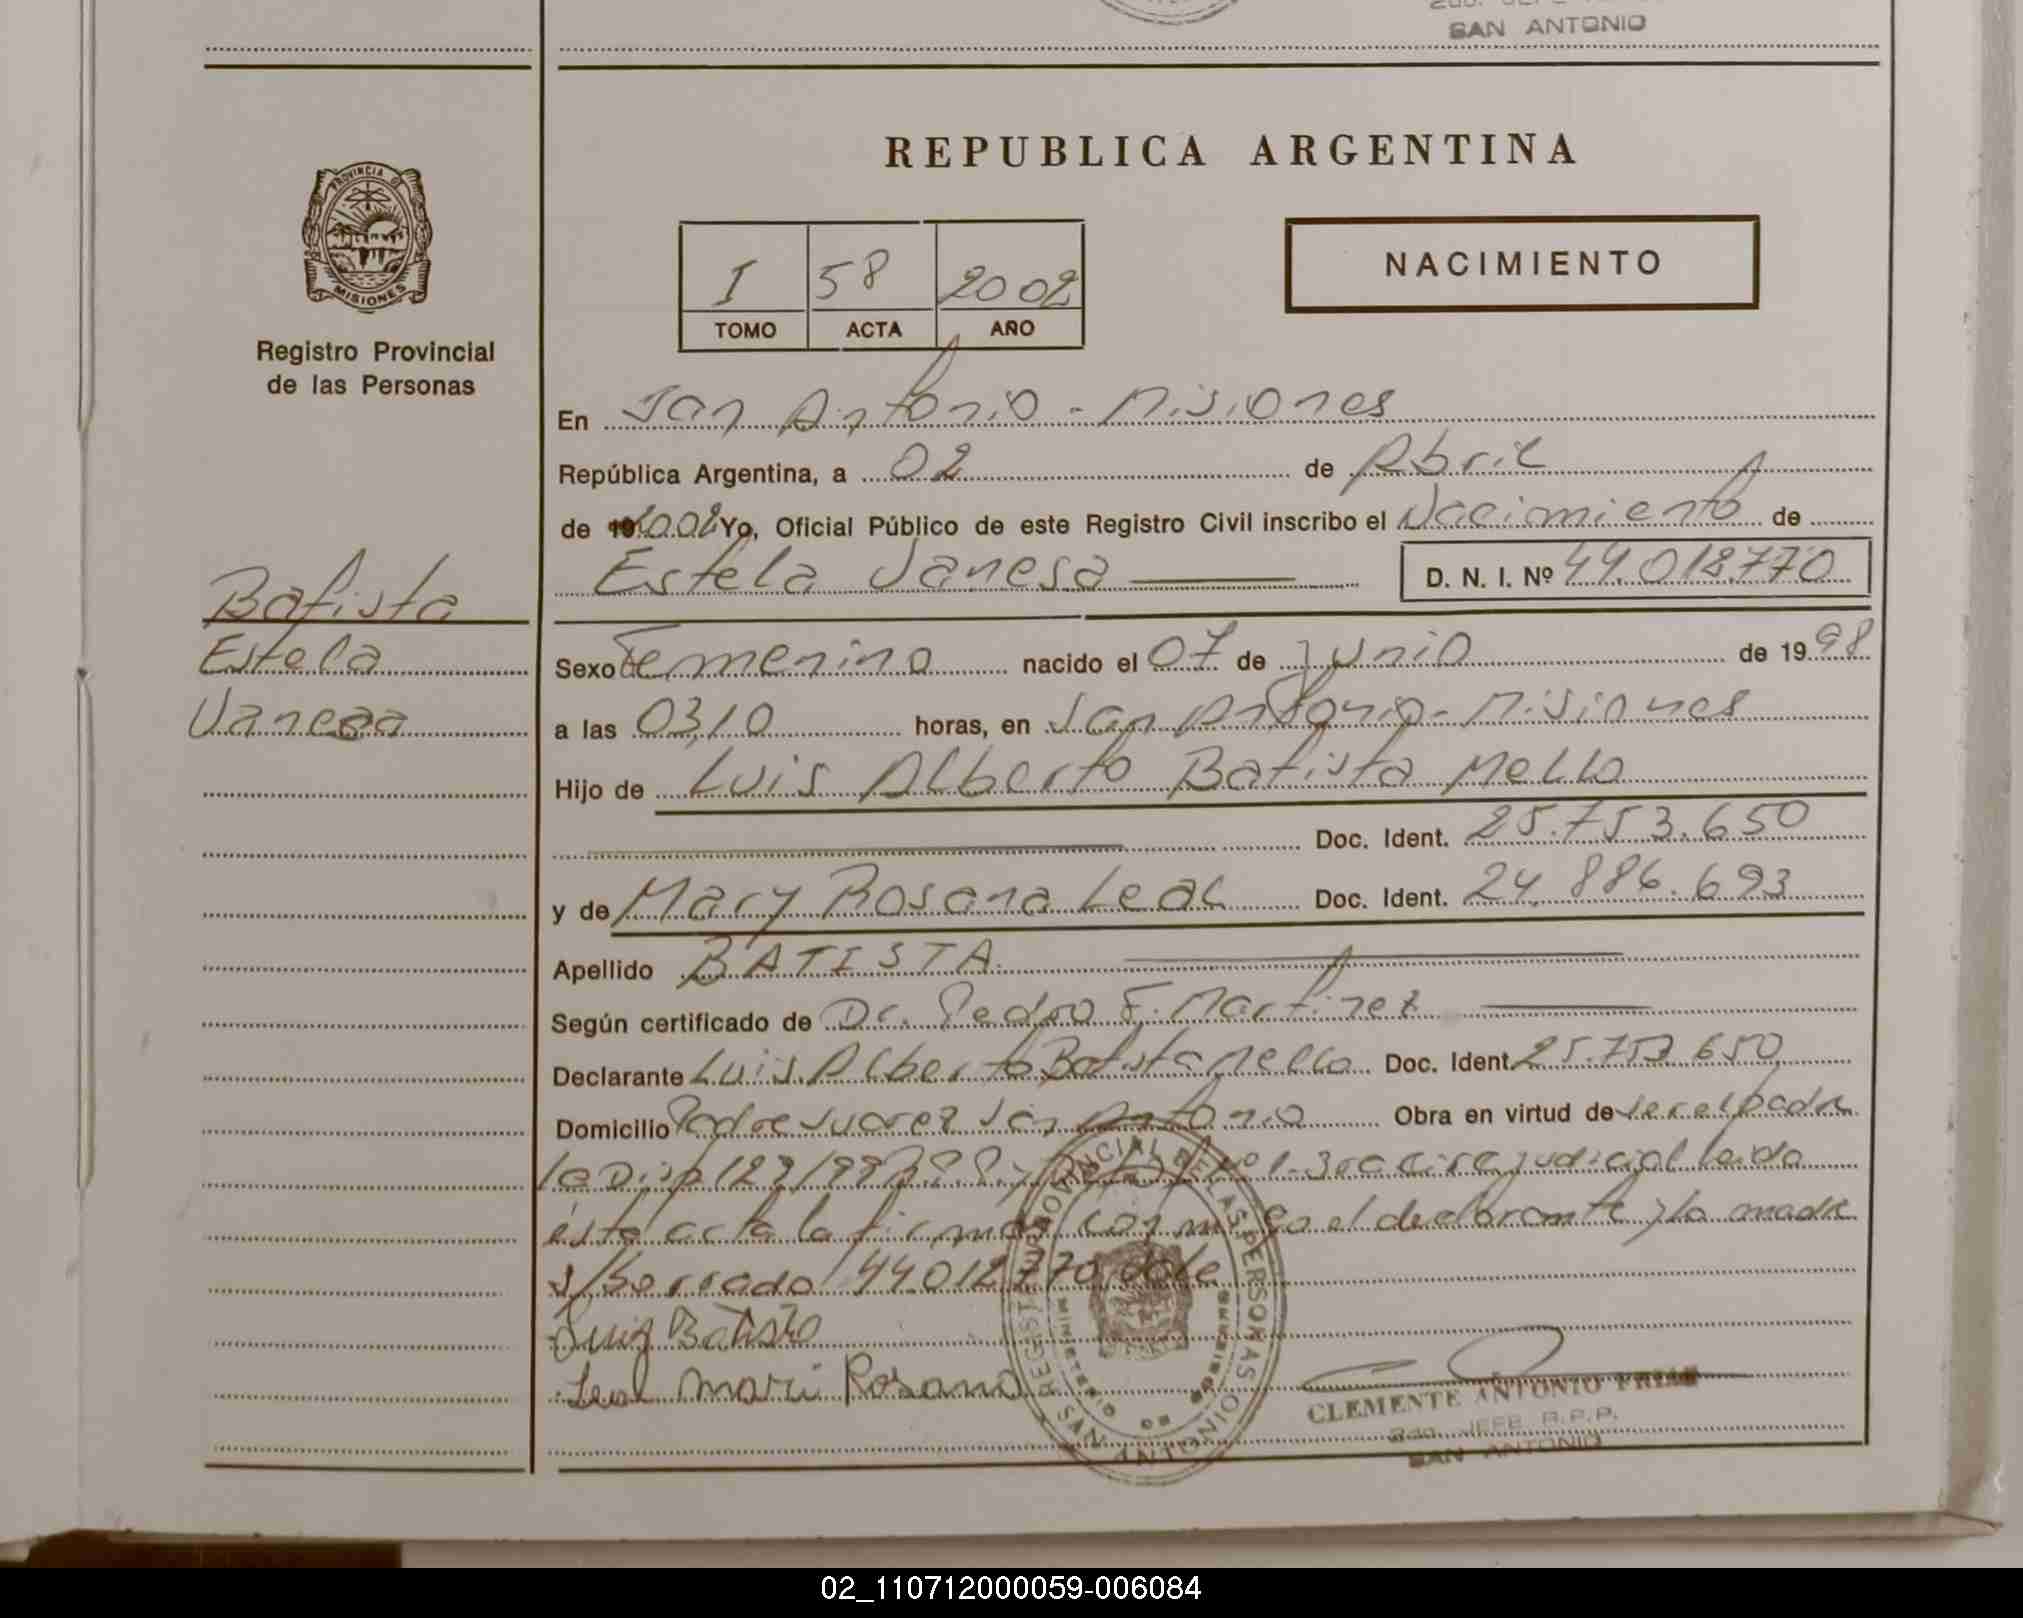 SAN ANTONIO
REPUBLICA ARGENTINA
PROVINCIA DE
MISIONES
Registro Provincial
de las Personas
I 58 2002
TOMO ACTA AÑO
NACIMIENTO
En San Antonio - Misiones
República Argentina, a 02 de Abril
de 2002 Yo, Oficial Público de este Registro Civil inscribo el Nacimiento de
Estela Vanesa D. N. I. Nº 44.018.770
Batista
Estela
Vanesa
Sexo Femenino nacido el 07 de junio de 1998
a las 03,10 horas, en San Antonio - Misiones
Hijo de Luis Alberto Batista Mello
Doc. Ident. 25.753.650
y de Mary Rosana Leal Doc. Ident. 24.886.693
Apellido BATISTA
Según certificado de Dr. Pedro F. Martinez
Declarante Luis Alberto Batista Mello Doc. Ident. 25.753.650
Domicilio Padre Juarez San Antonio Obra en virtud de ser el padre
judicial leida
ésta acta la firman conmigo el declarante y la madre
s/borrado 44.018.770 vale
Luis Batista
Leal Mari Rosana
REGISTRO PROVINCIAL DE LAS PERSONAS
SAN ANTONIO
MINISTERIO DE GOBIERNO
CLEMENTE ANTONIO FRIAS
JEFE R.P.P.
SAN ANTONIO
02_110712000059-006084